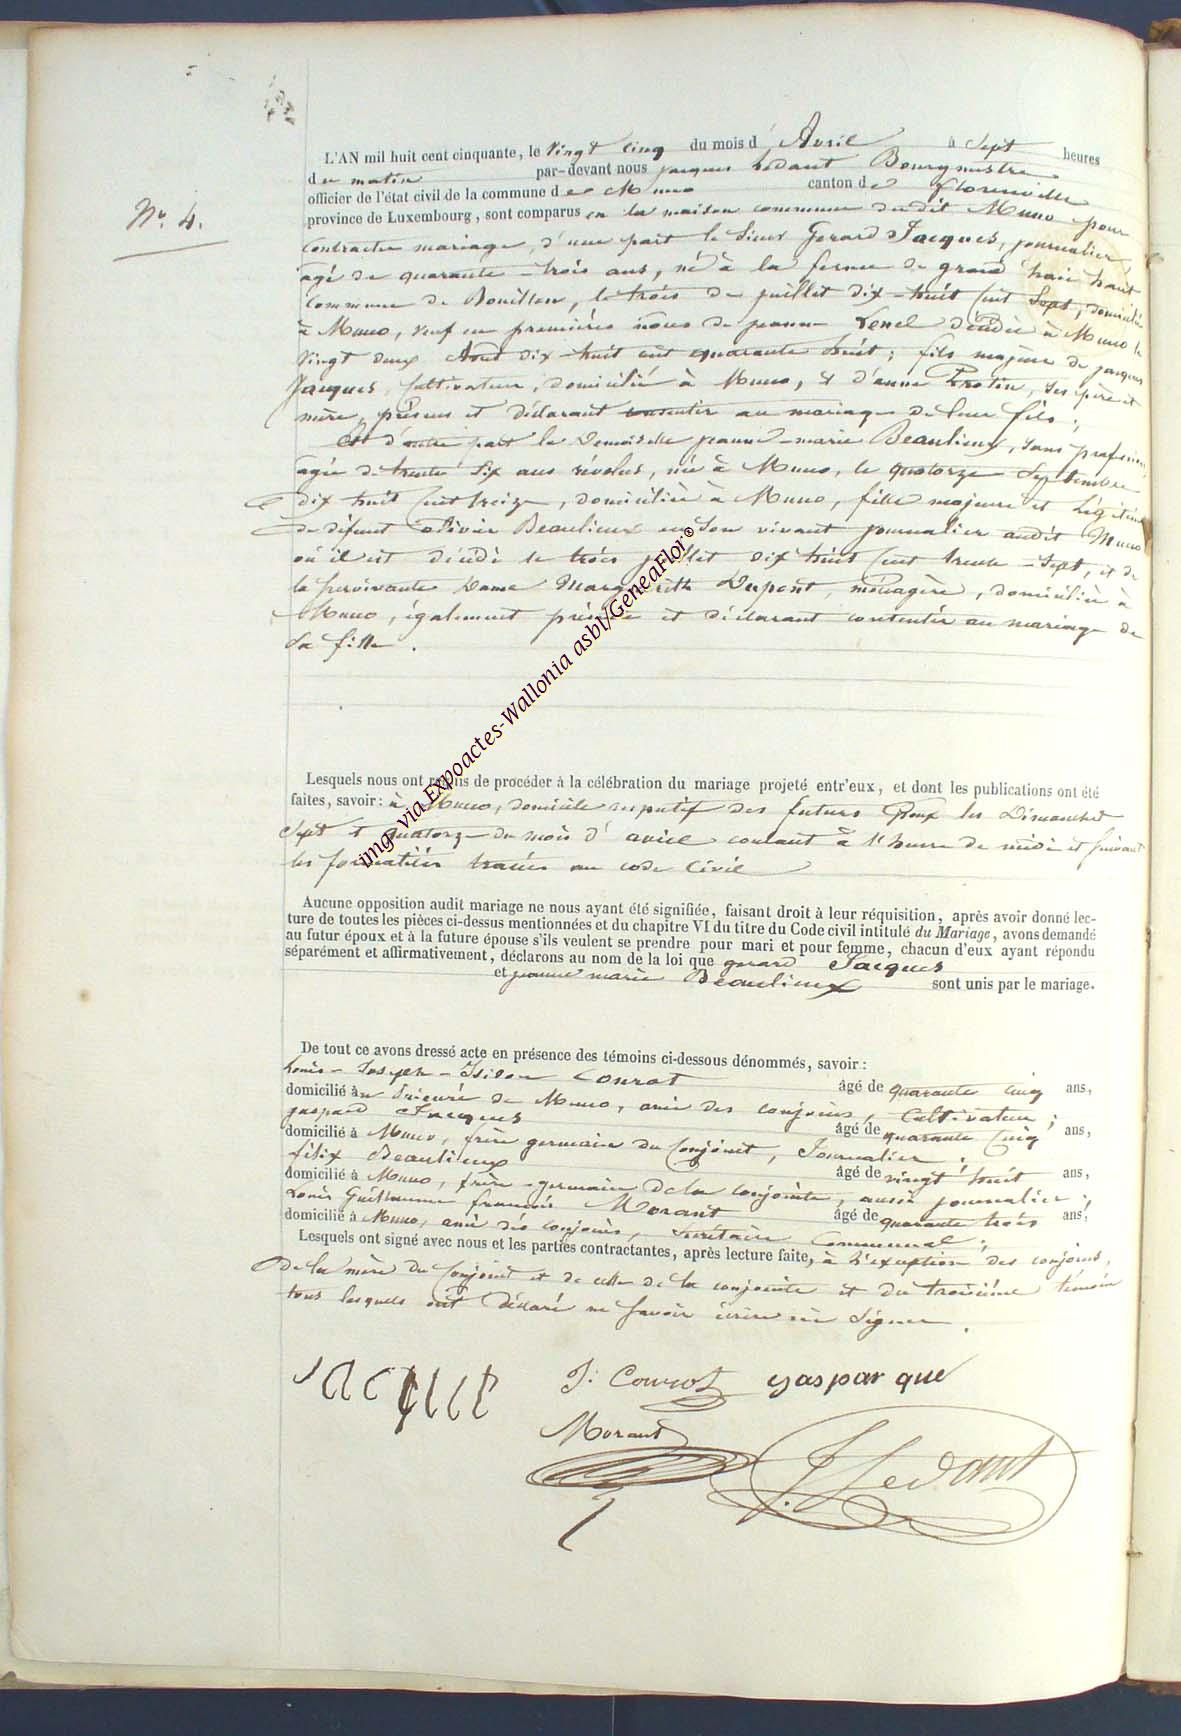 N.° 4.
L'AN mil huit cent cinquante, le vingt cinq du mois d'Avril à Sept heures
du matin par-devant nous jacques Ledant Bourgmestre
officier de l'état civil de la commune de Muno canton de Florenville
province de Luxembourg, sont comparus en la maison commune dudit Muno pour
contracter mariage, d'une part le Sieur Gerard Jacques, journalier,
agé de quarante-trois ans, né à la ferme de grand haie haut
Commune de Bouillon, le trois de juillet dix-huit Cent Sept, domicilié
à Muno, veuf en premières nôces de jeanne Lenel décédée à Muno le
vingt deux Aout dix-huit cent quarante huit; fils majeur de jacques
Jacques, Cultivateur, domicilié à Muno, et d'anne Protin, ses père et
mère, présens et déclarant consentir au mariage de leur fils;
Et d'autre part la Demoiselle jeanne-marie Beaulieux, sans profession
agée de trente six ans révolus, née à Muno, le quatorze Septembre
dix huit Cent treize, domiciliée à Muno, fille majeure et Légitime
de défunt olivier Beaulieux en son vivant journalier audit Muno
où il est décédé le trois juillet dix huit Cent trente-Sept, et de
la survivante Dame Marguerith Dupont, ménagère, domiciliée à
Muno, également présente et déclarant contentir au mariage de
sa fille.
Lesquels nous ont requis de procéder à la célébration du mariage projeté entr'eux, et dont les publications ont été
faites, savoir: à Muno, domicile respectif des futurs Epoux les Dimanches
Sept et quatorze du mois d'avril coulant à l'heure de midi et suivant
les formalités tracées au code Civil
Aucune opposition audit mariage ne nous ayant été signifiée, faisant droit à leur réquisition, après avoir donné lec-
ture de toutes les pièces ci-dessus mentionnées et du chapitre VI du titre du Code civil intitulé du Mariage, avons demandé
au futur époux et à la future épouse s'ils veulent se prendre pour mari et pour femme, chacun d'eux ayant répondu
séparément et affirmativement, déclarons au nom de la loi que gerard Jacques
et jeanne marie Beaulieux sont unis par le mariage.
De tout ce avons dressé acte en présence des témoins ci-dessous dénommés, savoir:
Louis-Joseph-Isidore Conrot âgé de quarante cinq ans,
domicilié au Prieuré de Muno, ami des conjoins, Cultivateur;
gaspard Jacques âgé de quarante Cinq ans,
domicilié à Muno, frère germain du Conjoint, Journalier;
félix Beaulieux âgé de vingt huit ans,
domicilié à Muno, frère germain de la conjointe, aussi journalier;
Louis Guillaume françois Morant âgé de quarante trois ans,
domicilié à Muno, ami des conjoins, Secrétaire Communal;
Lesquels ont signé avec nous et les parties contractantes, après lecture faite, à l'exception des conjoins,
de la mère du Conjoint et de celle de la conjointe et du troisième témoin
tous lesquels ont déclaré ne savoir écrire ni Signer.
J: Conrot gaspar que
Morant
J. Ledant
img. via Expoactes-Wallonia asbl/GeneaFlor©